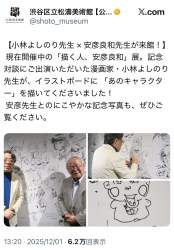 渋谷区立松濤美術館【公...
X.com
@shoto_museum
【小林よしのり先生 × 安彦良和先生が来館！】
現在開催中の「描く人、安彦良和」展。記念
対談にご出演いただいた漫画家・小林よしのり
先生が、イラストボードに 「あのキャラクタ
ー」を描いてくださいました！
安彦先生とのにこやかな記念写真も、ぜひご
覧ください。
13:20 · 2025/12/01 · 6.2万回表示